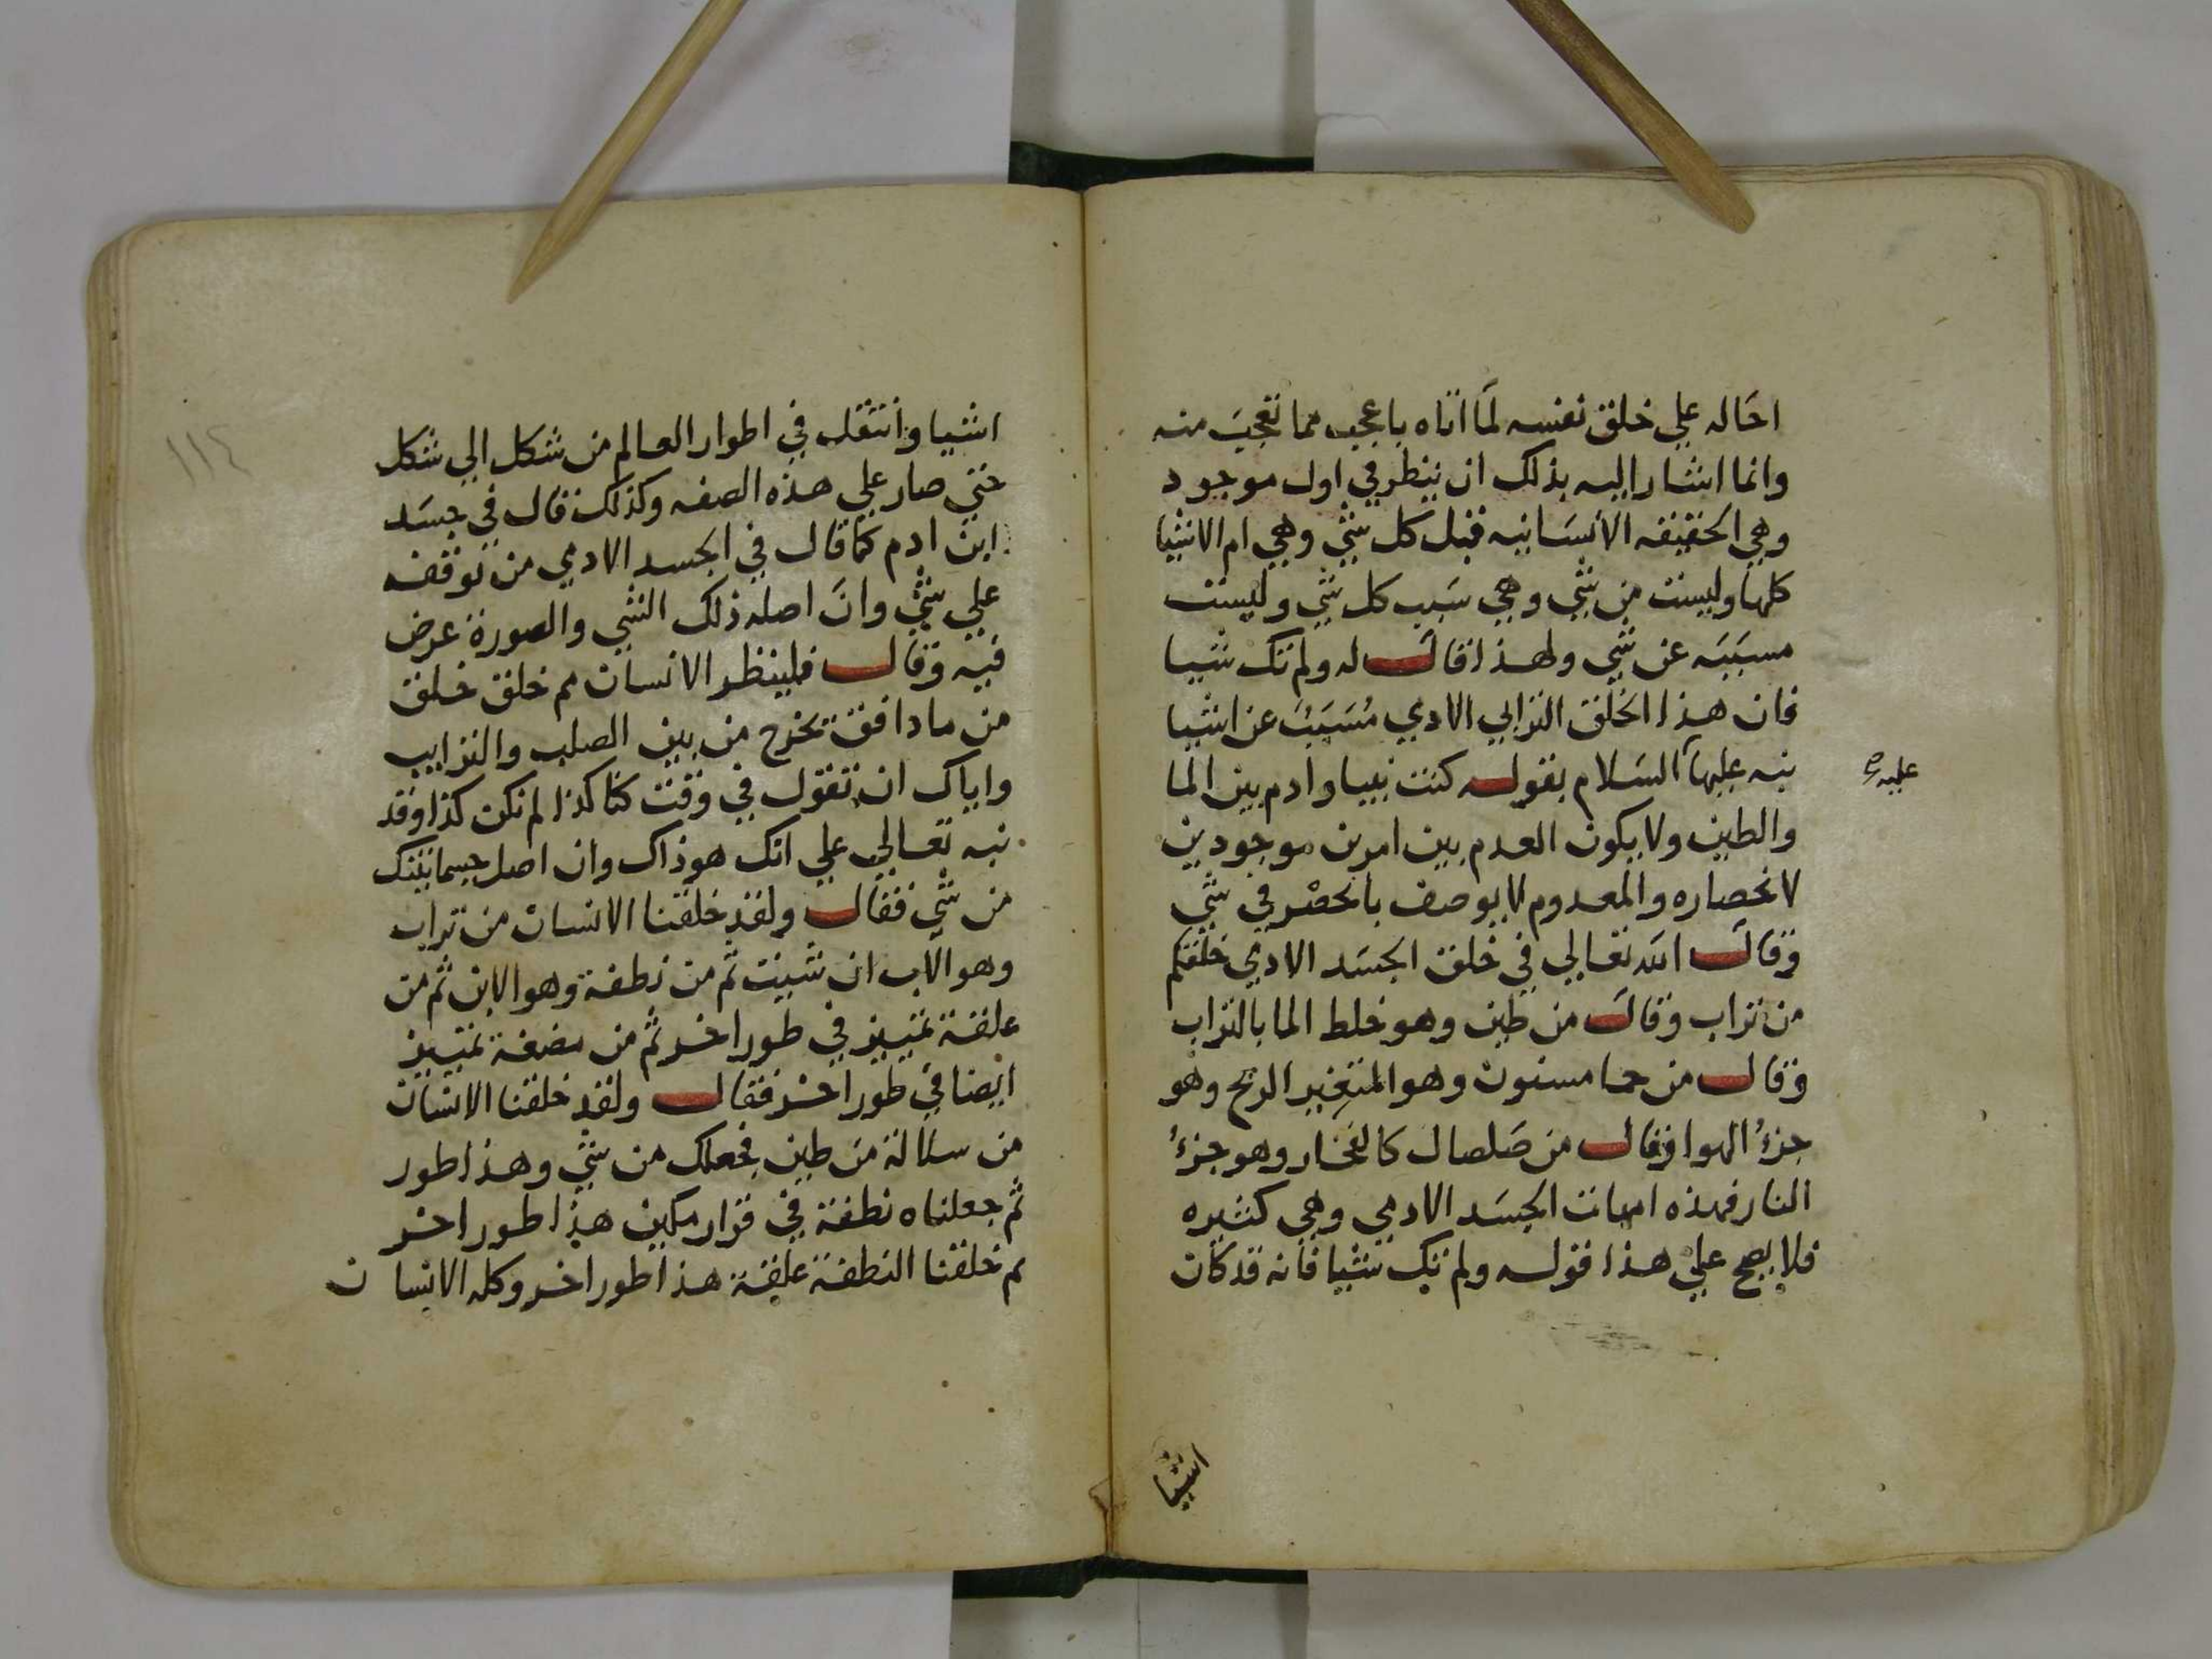 احاله علي خلق نفسه لما اتاه باعجب مما تعجب منه
وانما اشار اليه بذلك ان ينظر في اول موجود
وهي الحقيقه الانسانيه قبل كل شي وهي ام الاشيا
كلها وليست من شي وهي سبب كل شي وليست
مسببه عن شي ولهذا قال له ولم تك شيا
فان هذا الخلق الترابي الادمي مسبب عن اشيا
نبه عليها السلام بقوله كنت نبيا وادم بين الما
عليه
والطين ولا يكون العدم بين امرين موجودين
لانحصاره والمعدوم لا يوصف بالحصر في شي
وقال الله تعالي في خلق الجسد الادمي خلقكم
من تراب وقال من طين وهو خلط الما بالتراب
وقال من حما مسنون وهو المتغير الريح وهو
جزء الهوا وقال من صلصال كالفخار وهو جزء
النار فهذه امهات الجسد الادمي وهي كثيره
فلا يصح علي هذا قوله ولم تك شيا فانه قد كان
اشيا
١١٤
اشيا وانتقل في اطوار العالم من شكل الي شكل
حتي صار علي هذه الصفه وكذلك قال في جسد
ابن ادم كما قال في الجسد الادمي من توقفه
علي شي وان اصله ذلك الشي والصورة عرض
فيه وقال فلينظر الانسان مم خلق خلق
من ما دافق تخرج من بين الصلب والترايب
واياك ان تقول في وقت كنا كذا لم نكن كذا وقد
نبه تعالي علي انك هو ذاك وان اصل جسمانيتك
من شي فقال ولقد خلقنا الانسان من تراب
وهو الاب ان شيت ثم من نطفة وهو الابن ثم من
علقة تمييز في طور اخر ثم من مضغة تمييز
ايضا في طور اخر فقال ولقد خلقنا الانسان
من سلالة من طين فجعلك من شي وهذا طور
ثم جعلناه نطفة في قرار مكين هذا طور اخر
ثم خلقنا النطفة علقة هذا طور اخر وكله الانسان